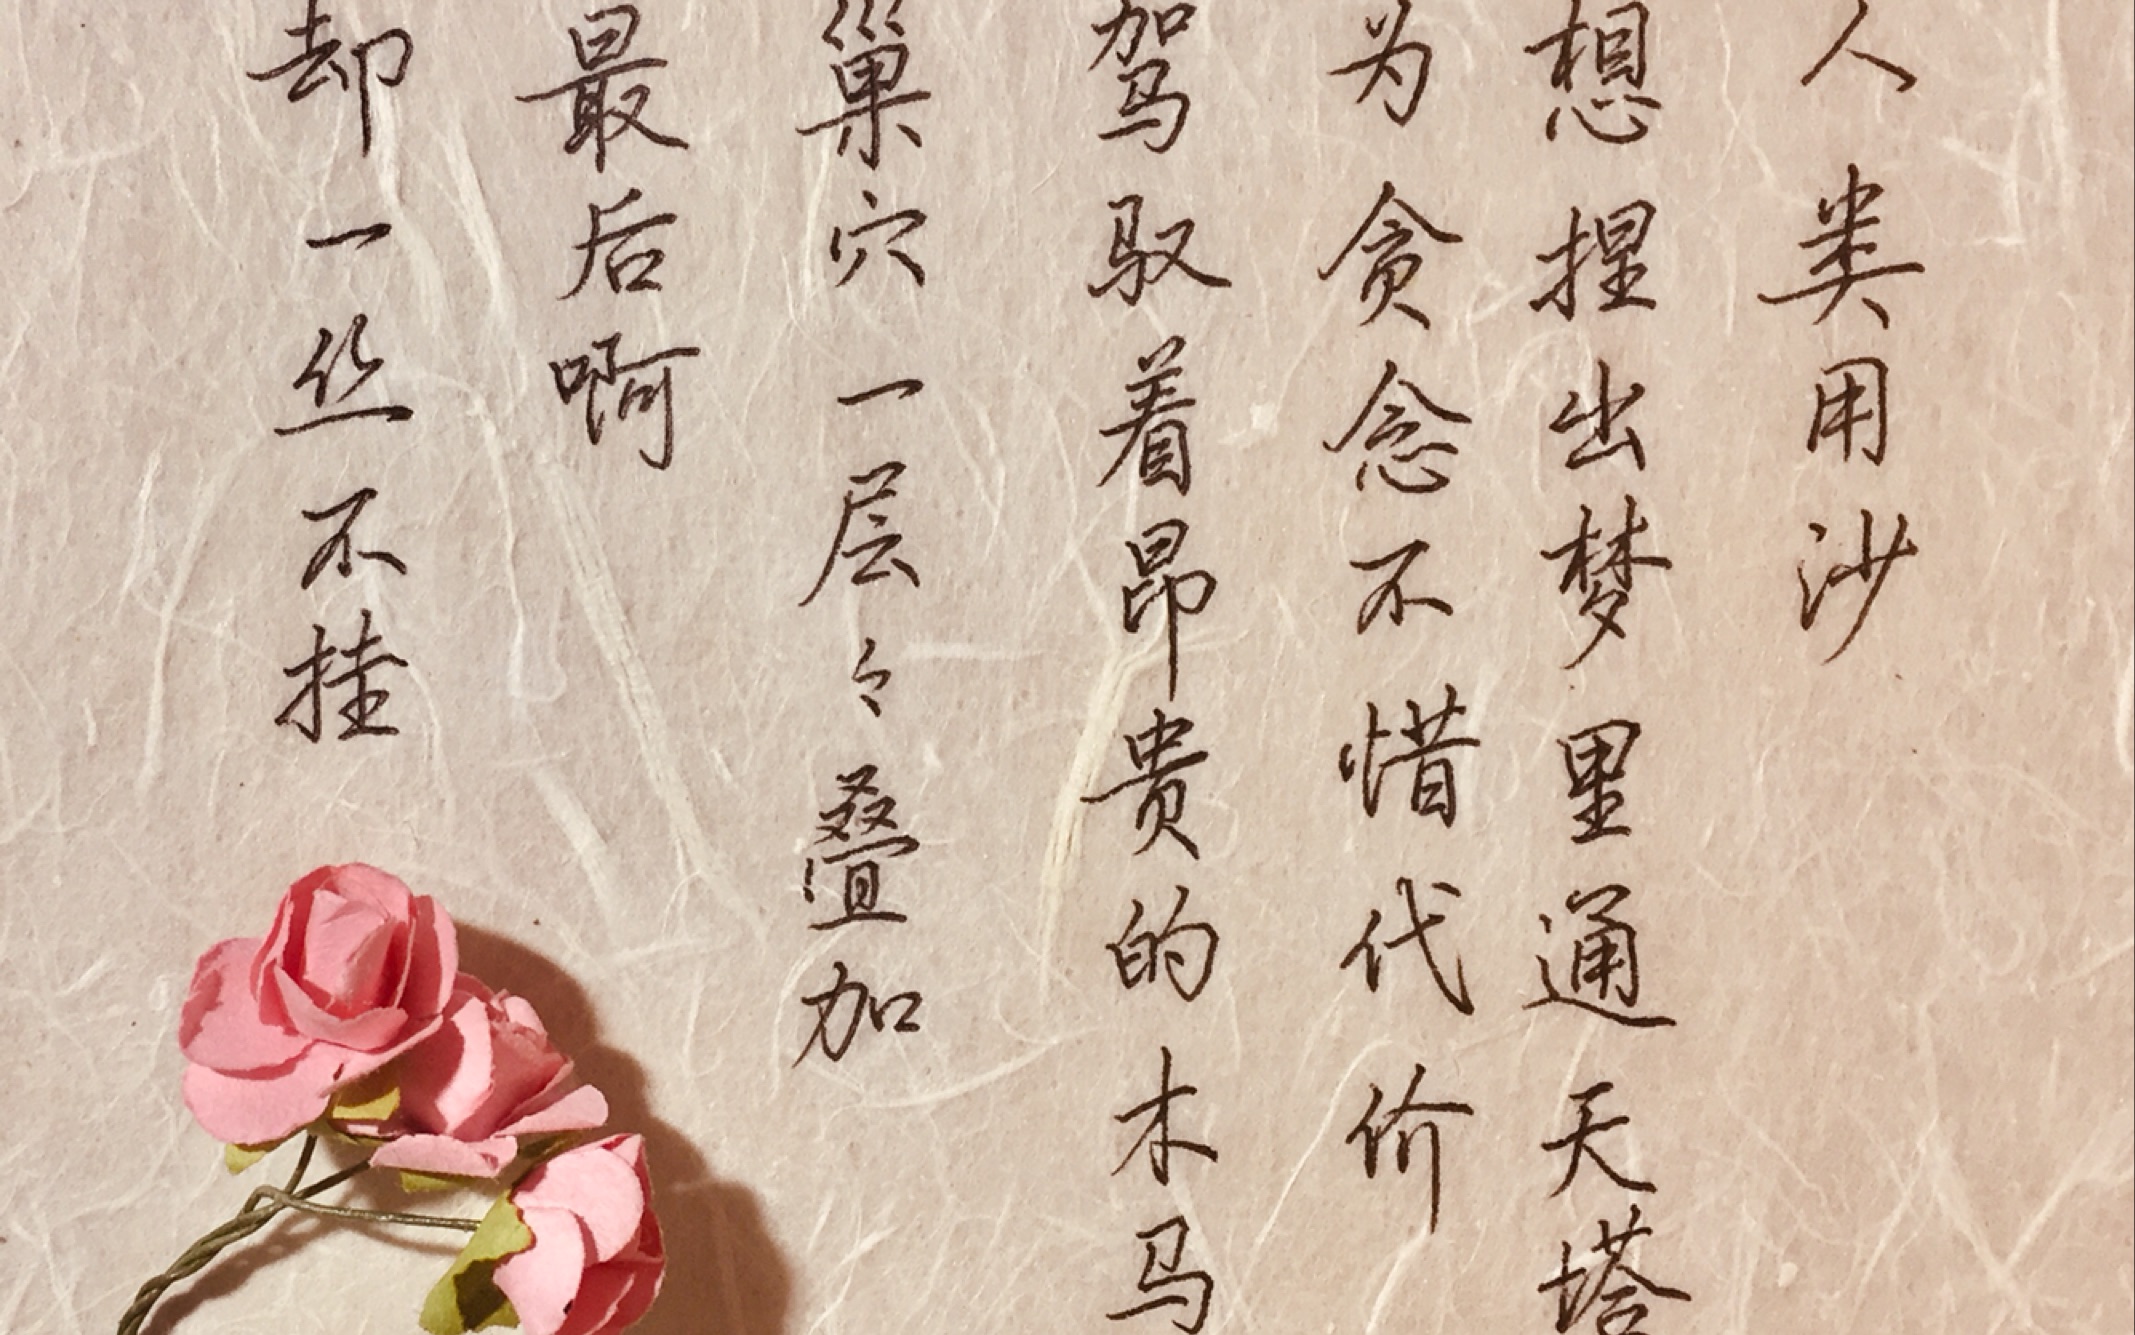 人类用沙
想捏出梦里通天塔
为贪念不惜代价
驾驭着昂贵的木马
巢穴一层々叠加
最后啊
却一丝不挂